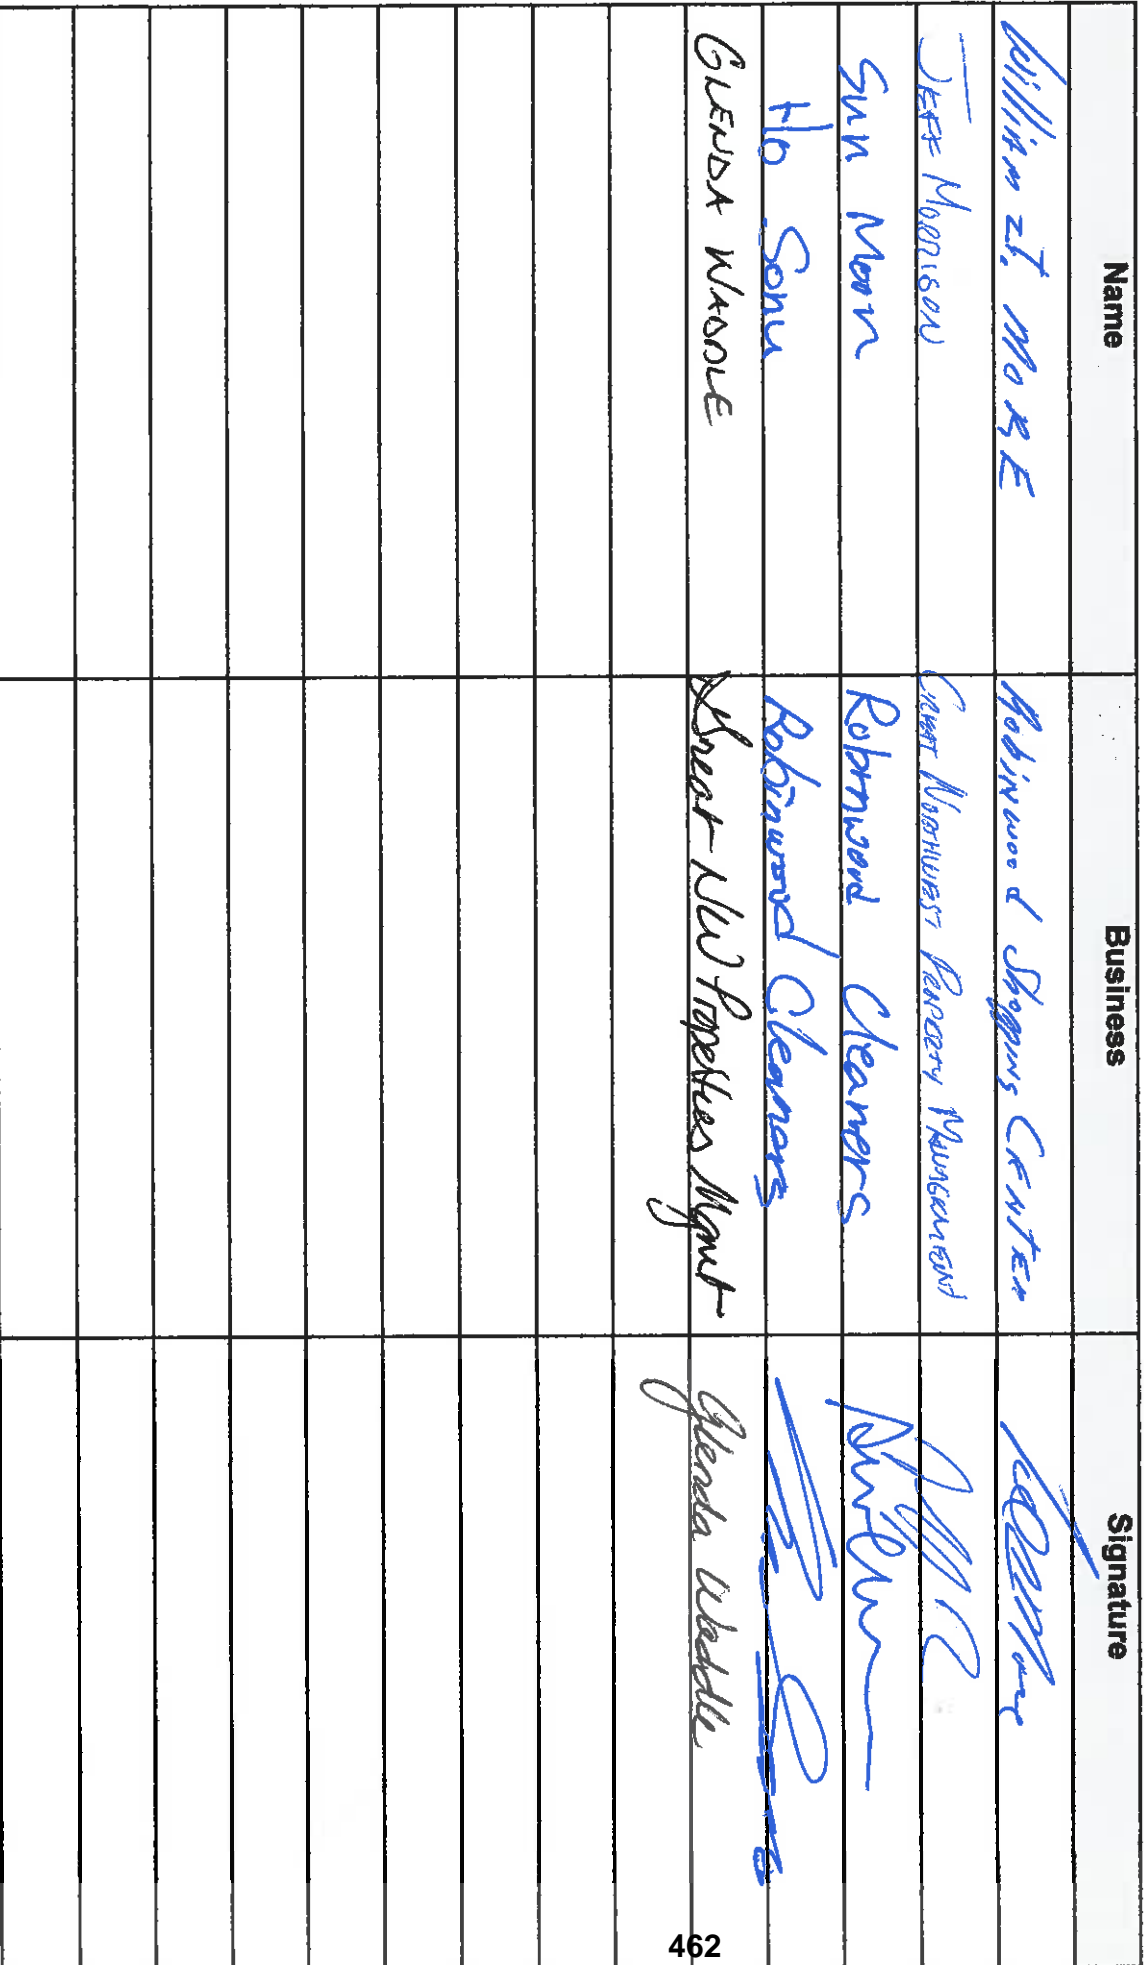 Name Business Signature
William J. MORE Robinwood Shopping CENTER
JEFF MORRISON GREAT NORTHWEST PROPERTY MANAGEMENT
Sun Moon Robinwood Cleaners
Ho Sonu Robinwood Cleaners
GLENDA WADDLE Great NW Properties Mgmt Glenda Waddle
462